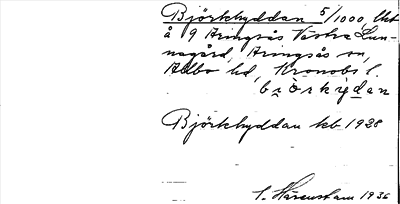 Björkhyddan 5/1000, lht
å 9 Aringsås Västra Lun-
nagård, Aringsås sn,
Allbo hd, Kronobs l.
björkydan
Björkhyddan kb 1928
1936